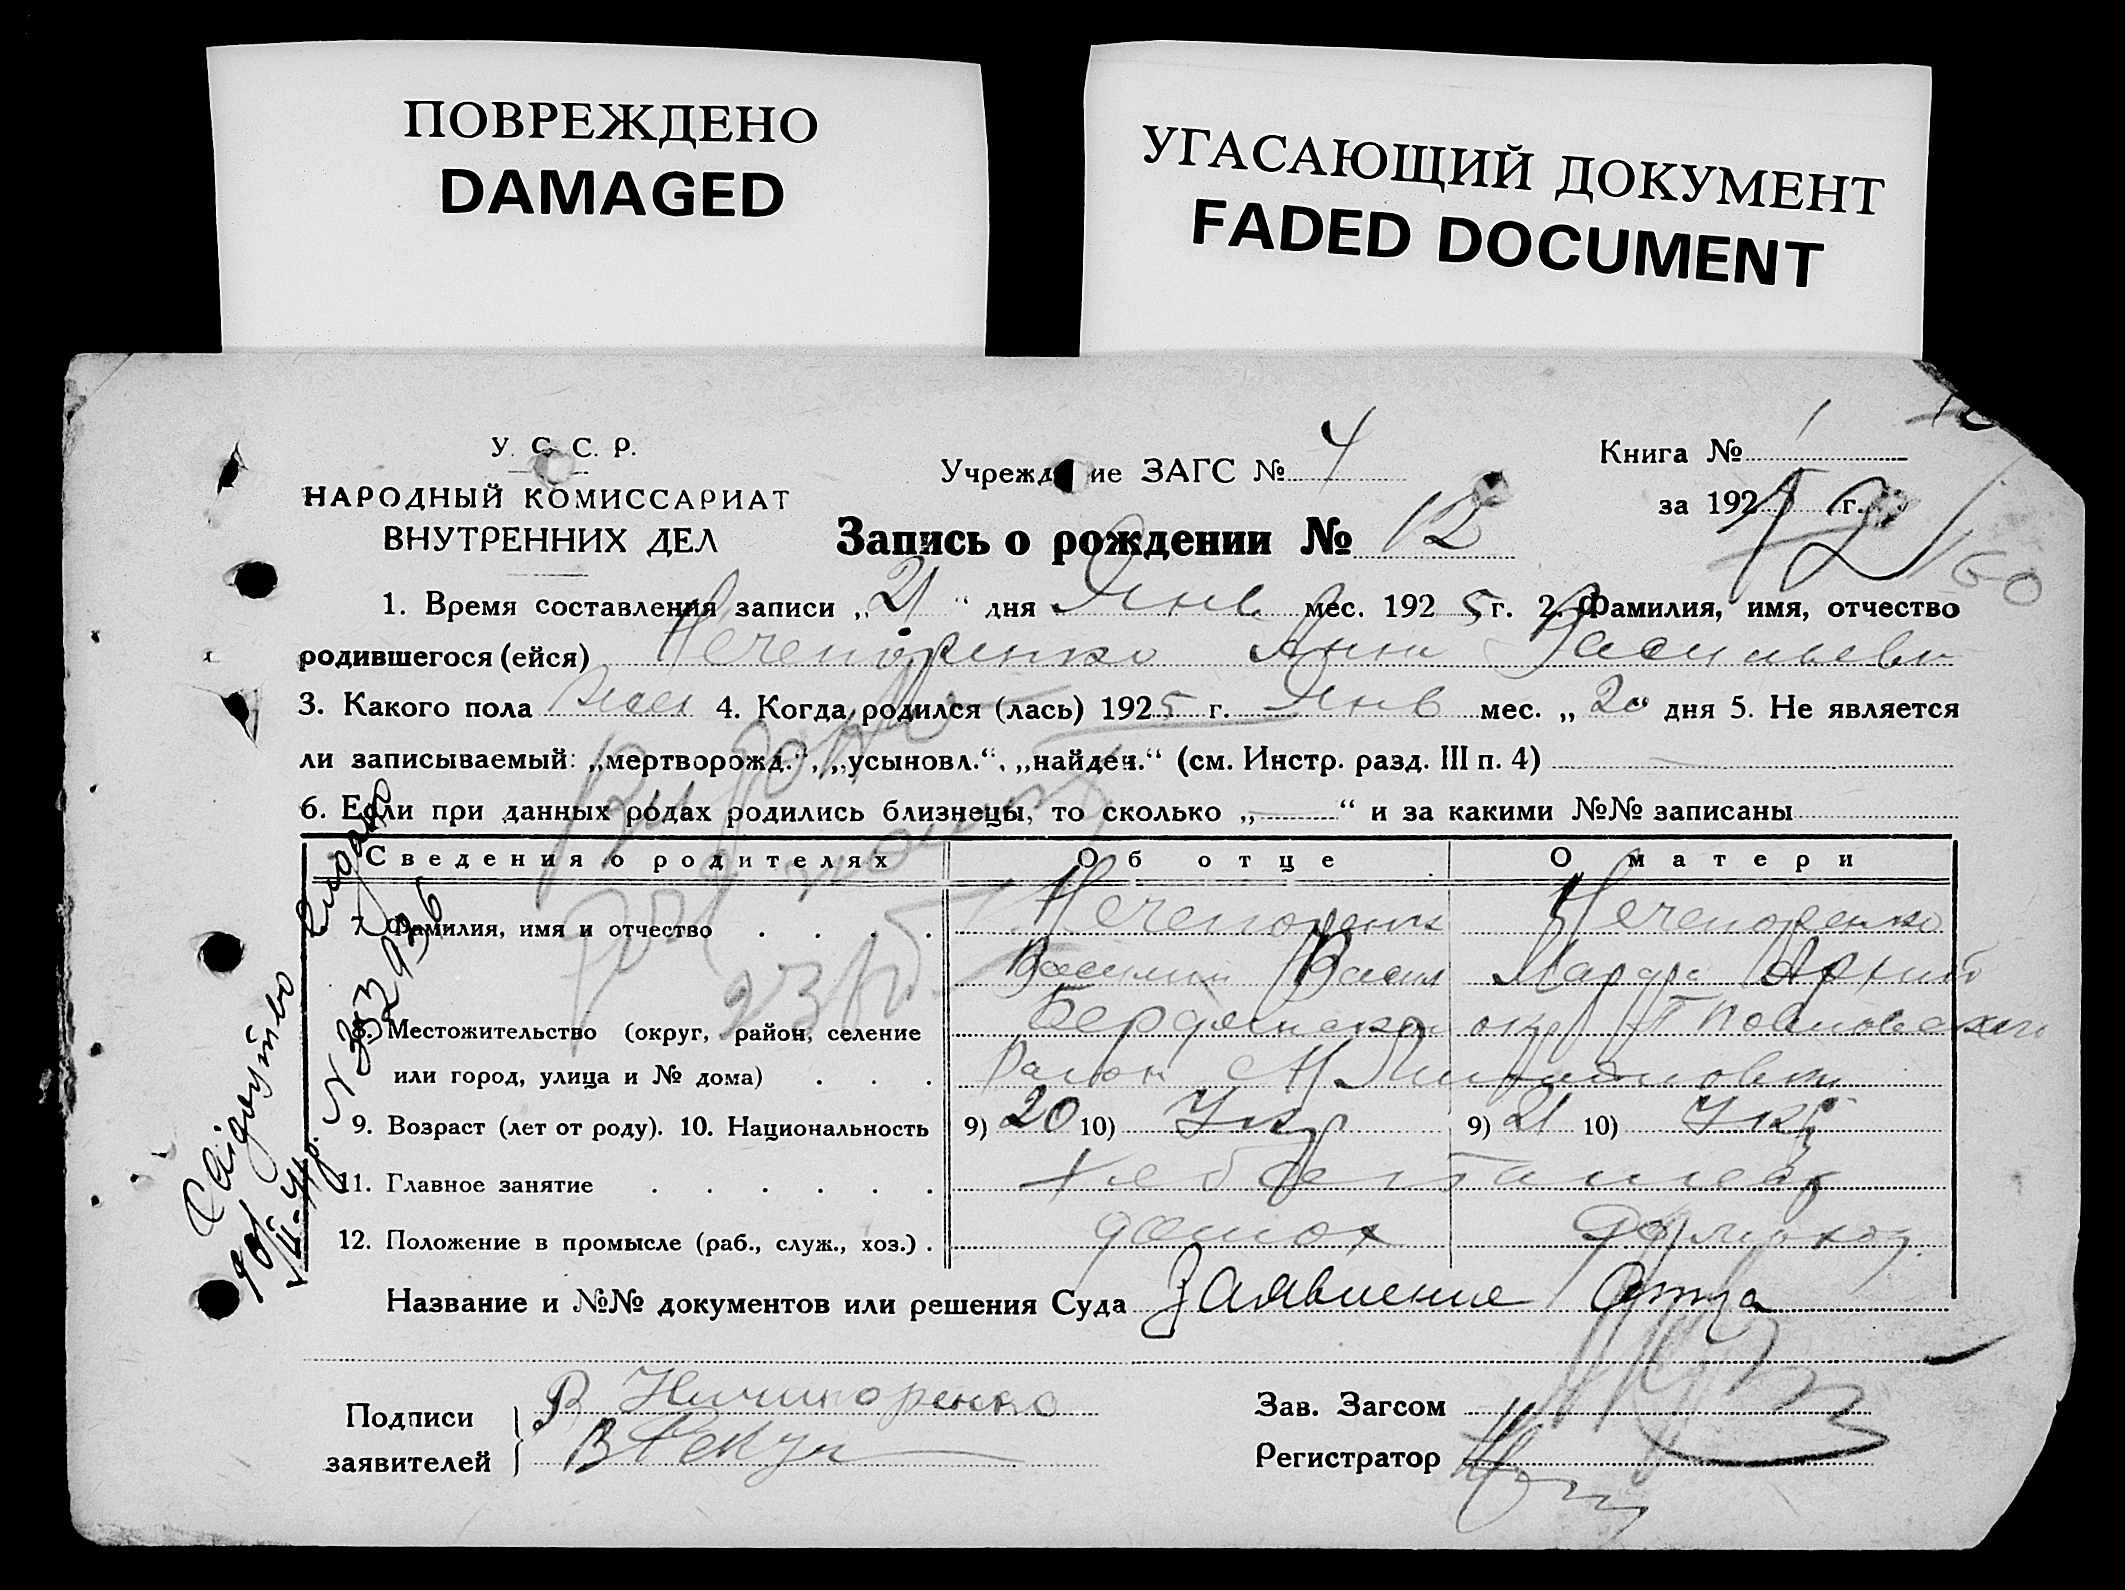 ПОВРЕЖДЕНО
DAMAGED
УГАСАЮЩИЙ ДОКУМЕНТ
FADED DOCUMENT
У. С. С. Р.
НАРОДНЫЙ КОМИССАРИАТ
ВНУТРЕННИХ ДЕЛ
Учреждение ЗАГС № 4
Книга № 1
за 1925 г.
Запись о рождении № 12
60
1. Время составления записи „21“ дня Янв мес. 1925 г. 2. Фамилия, имя, отчество
родившегося (ейся) Нечепоренко Анна Васильевн
3. Какого пола 4. Когда родился (лась) 1925 г. Янв мес. „20“ дня 5. Не является
ли записываемый: „мертворожд.“, „усыновл.“, „найден.“ (см. Инстр. разд. III п. 4)
6. Если при данных родах родились близнецы, то сколько „ “ и за какими №№ записаны
Сведения о родителях Об отце О матери
7. Фамилия, имя и отчество Нечепоренк Нечепоренко
Василий Васил Марфа
8. Местожительство (округ, район, селение Бердянском окр
или город, улица и № дома) Район
9. Возраст (лет от роду). 10. Национальность 9) 20 10) Укр 9) 21 10) Укр
11. Главное занятие Хлебопашес
12. Положение в промысле (раб., служ., хоз.)
Название и №№ документов или решения Суда Заявление Отца
Подписи В Ничипоренко
заявителей
Зав. Загсом
Регистратор
Свідоцтво
видано